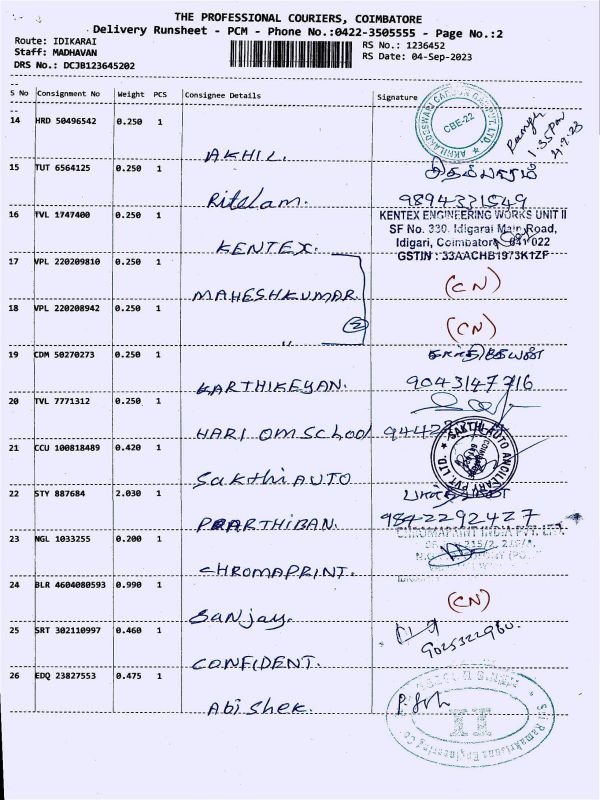 THE PROFESSIONAL COURIERS, COIMBATORE
Delivery Runsheet - PCM - Phone No.:0422-3505555 - Page No.:2
Route: IDIKARAI
Staff: MADHAVAN
DRS No.: DCJB123645202
RS No.: 1236452
RS Date: 04-Sep-2023
S No Consignment No Weight PCS Consignee Details Signature
14 HRD 50496542 0.250 1
AKHIL.
CBE-22
1.35pm
4.9.23
15 TUT 6564125 0.250 1
Ritelam.
9894331549
16 TVL 1747400 0.250 1
KENTEX.
KENTEX ENGINEERING WORKS UNIT II
SF No. 330, Idigarai Main Road,
Idigari, Coimbatore 641 022
GSTIN : 33AACHB1973K1ZF
17 VPL 220209810 0.250 1
MAHESHKUMAR.
(CN)
18 VPL 220208942 0.250 1
"
②
(CN)
19 CDM 50270273 0.250 1
KARTHIKEYAN.
கார்த்திகேயன்
9043147716
20 TVL 7771312 0.250 1
HARI OM SCHOOL
9442
21 CCU 100818489 0.420 1
SAKTHI AUTO
SAKTHI AUTO ANCILLARY PVT LTD.
22 STY 887684 2.030 1
PRARTHIBAN.
9842292427
23 NGL 1033255 0.200 1
CHROMAPRINT.
CHROMAPRINT INDIA PVT. LTD.
24 BLR 4604080593 0.990 1
Sanjay.
(CN)
25 SRT 302110997 0.460 1
CONFIDENT.
9025322980.
26 EDQ 23827553 0.475 1
Abishek.
Sri Ramakrishna Engineering Co.